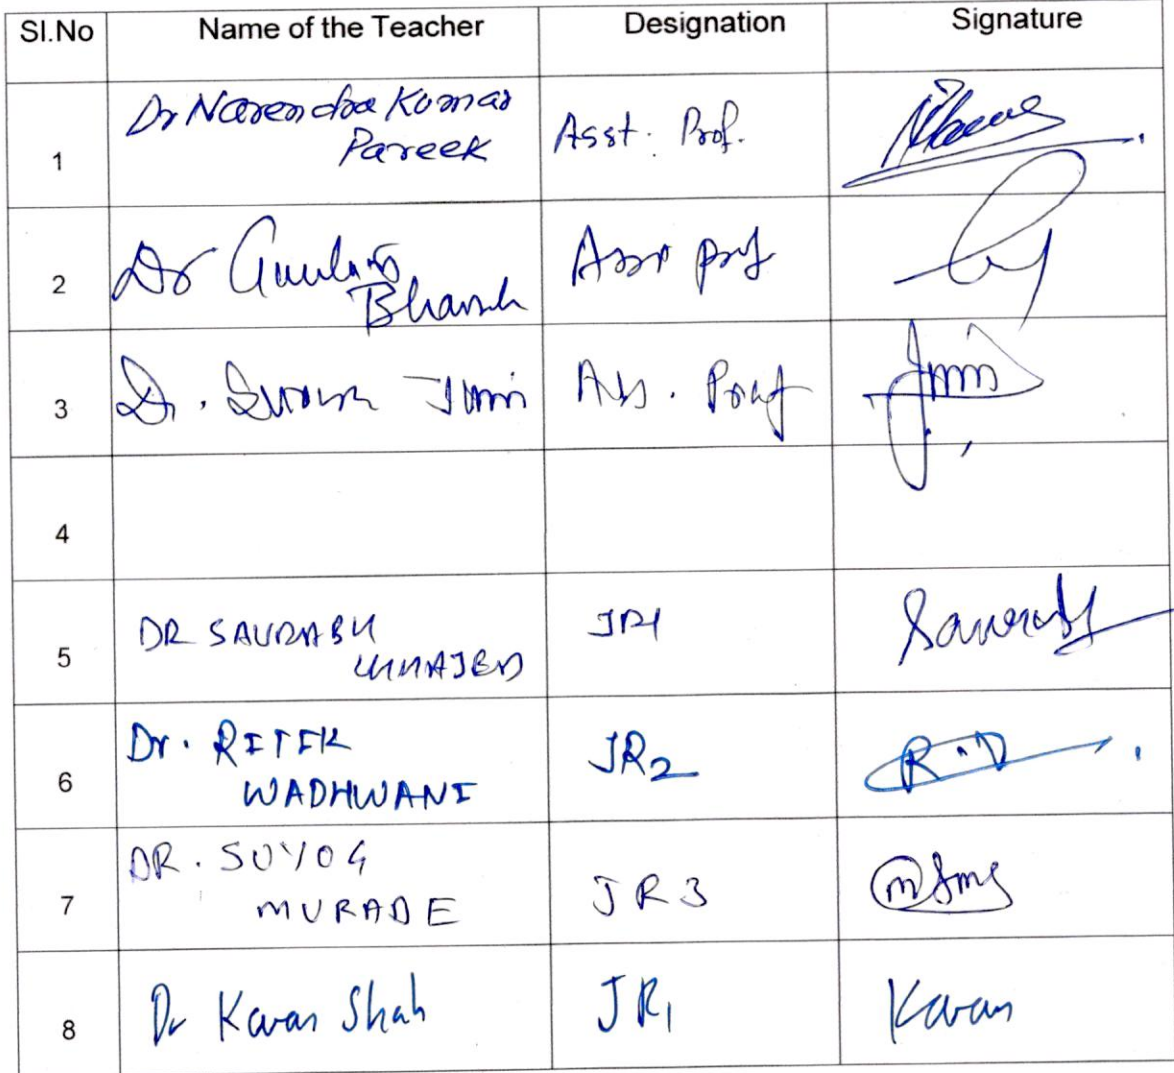 Sl.No Name of the Teacher Designation Signature
1 Dr Narendra Kumar
Pareek Asst. Prof.
2 Dr
Prof
3 Dr. Ass. Prof
4
5 DR SAURABH JR1 Saurabh
6 Dr. RITIK
WADHWANI JR2 R.D
7 DR. SUYOG
MURADE JR3
8 Dr Karan Shah JR1 Karan